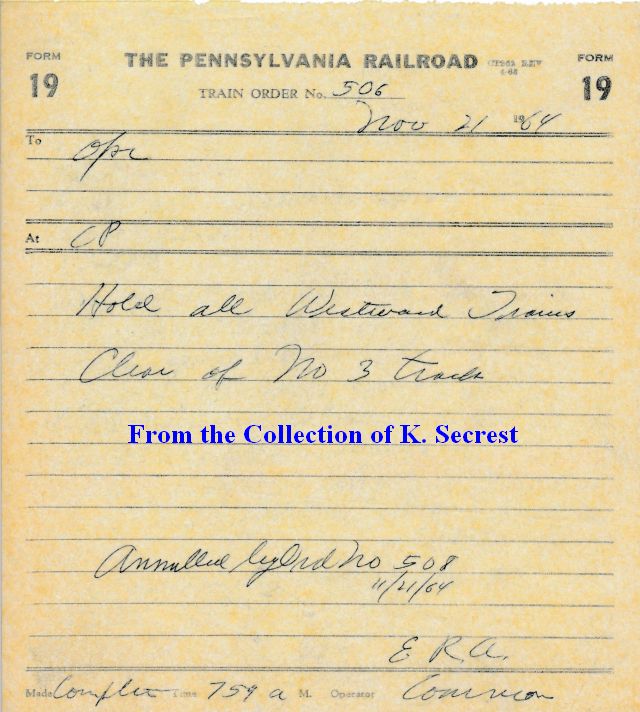 FORM THE PENNSYLVANIA RAILROAD FORM
19 TRAIN ORDER No. 506 19
Nov 21 1964
To Opr
At CP
Hold all Westward Trains
Clear of No 3 track
From the Collection of K. Secrest
Annulled by Ord No 508
11/21/64
E. R. A.
Made Complete Time 759 a M. Operator